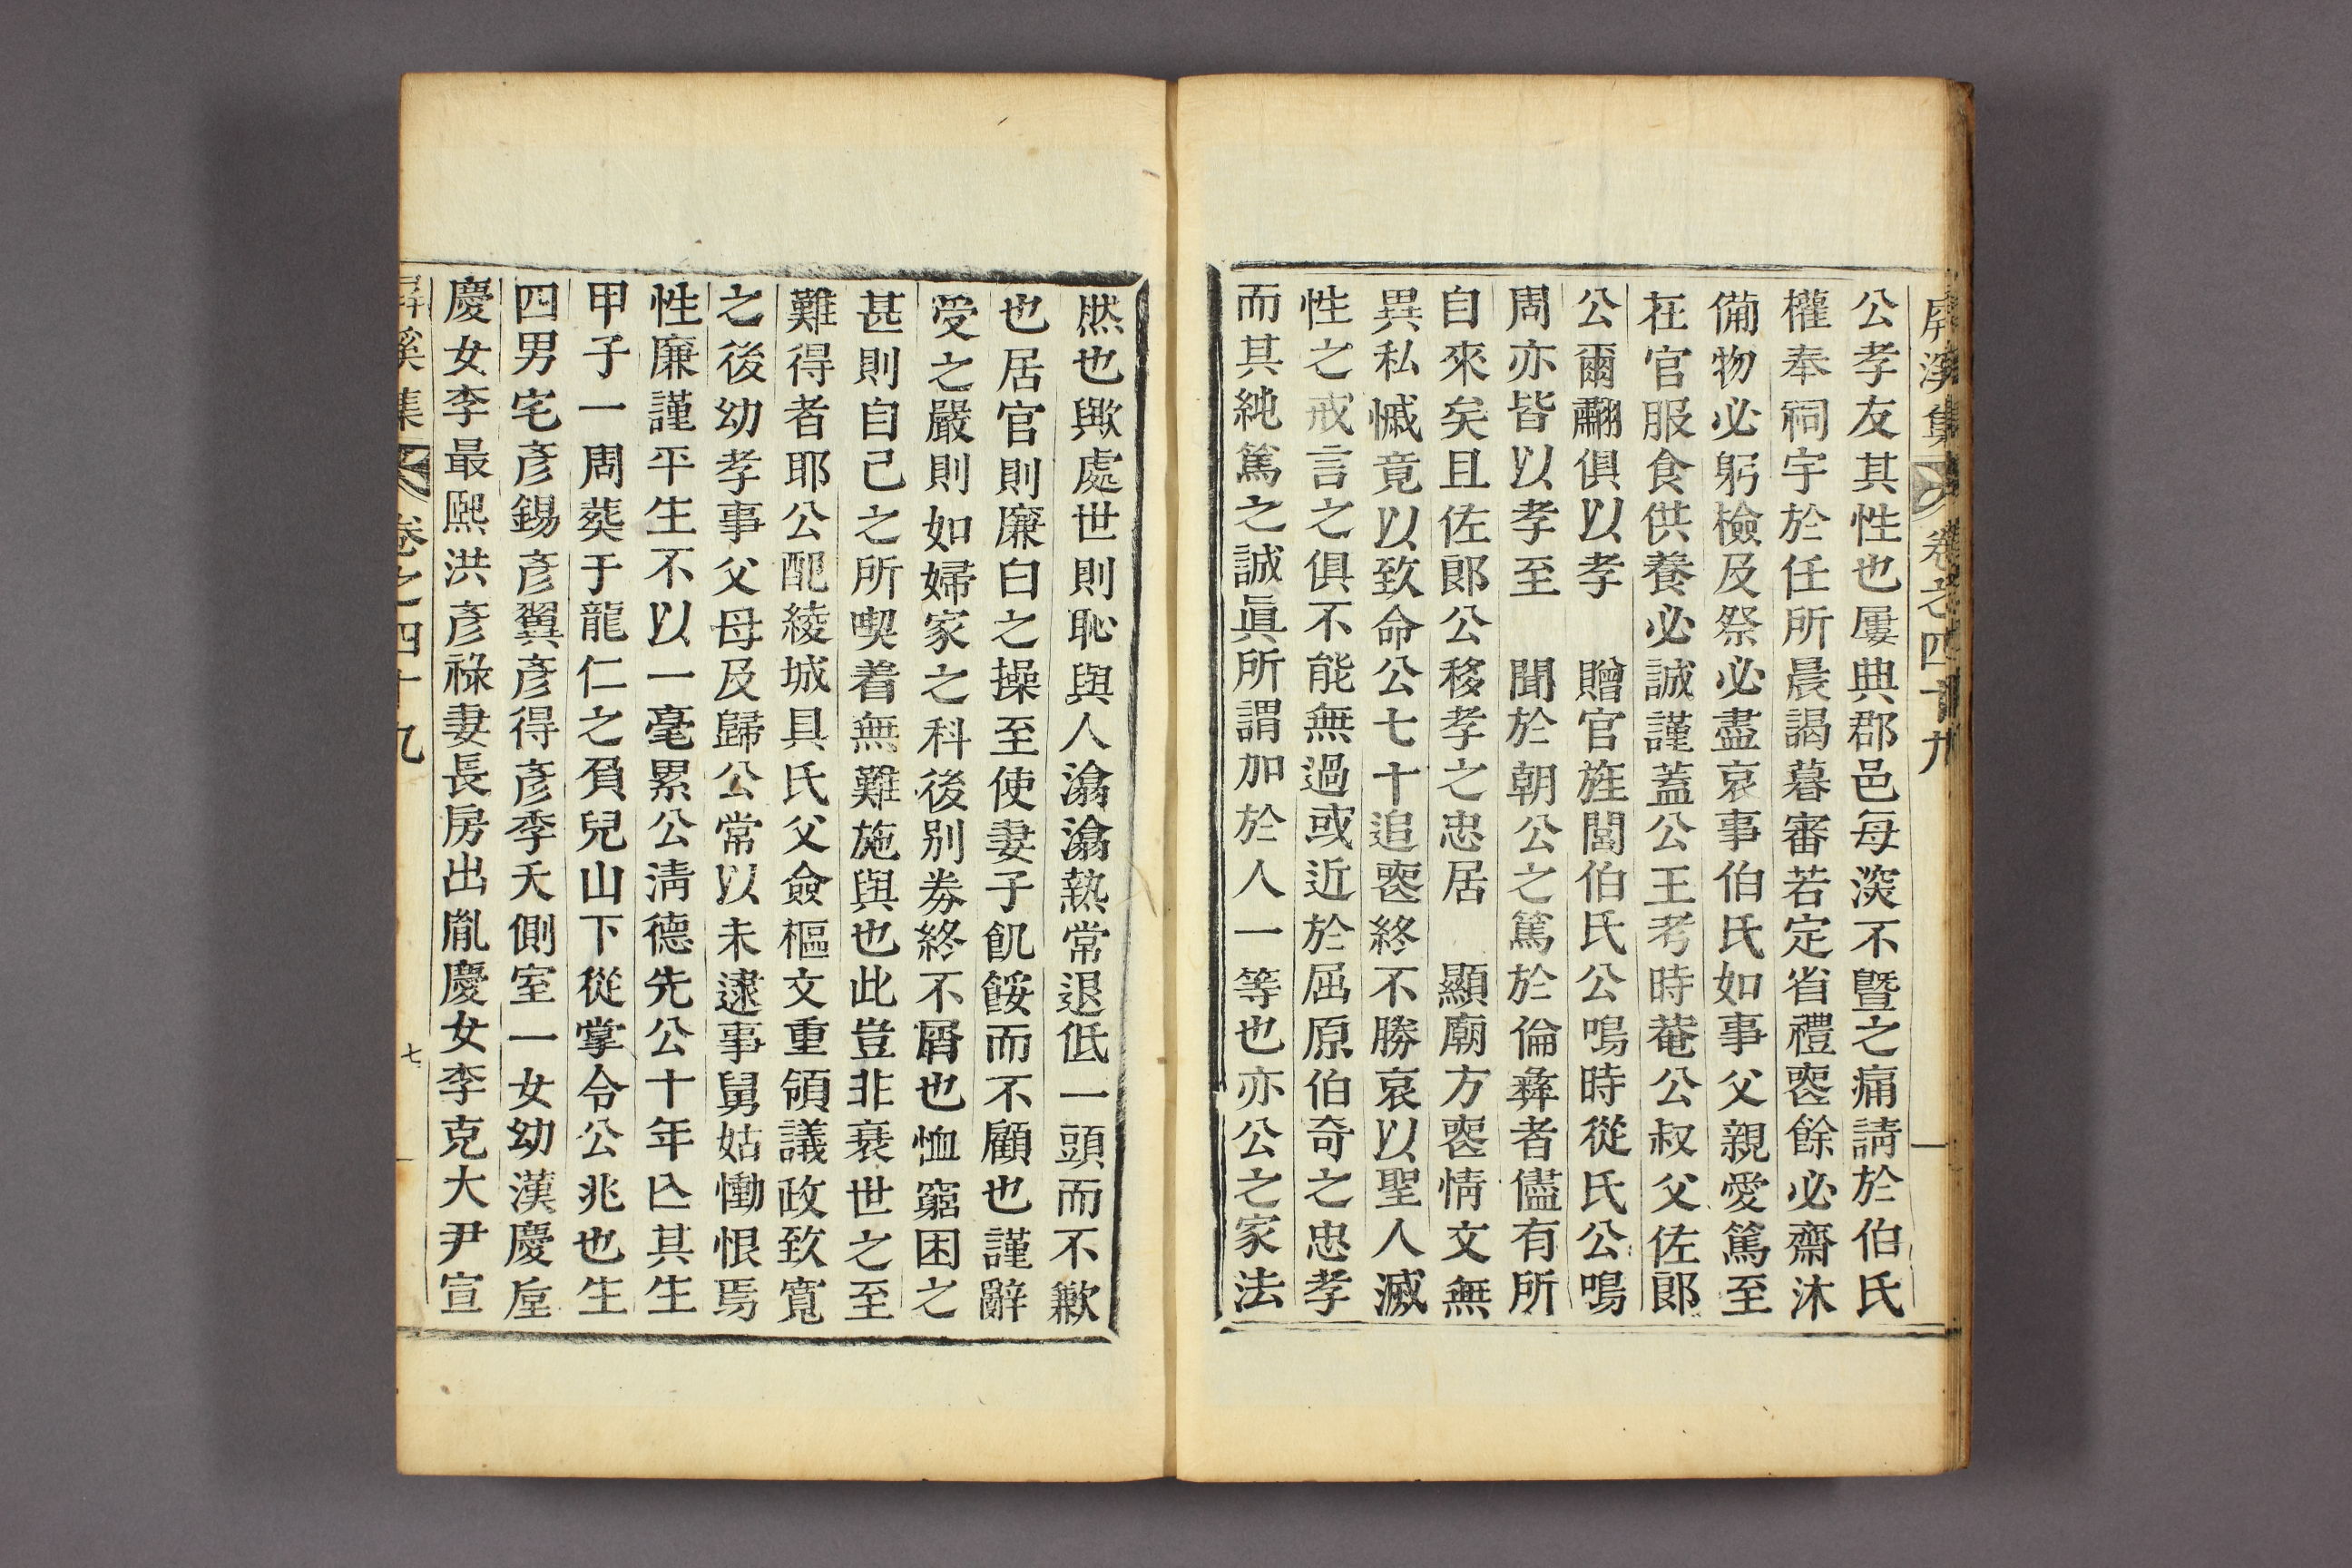 屛溪集 卷之四十九
公孝友其性也屢典郡邑每湥不曁之痛請於伯氏
權奉祠宇於任所晨謁暮審若定省禮䘮餘必齋沐
備物必躬檢及祭必盡哀事伯氏如事父親愛篤至
在官服食供養必誠謹蓋公王考時菴公叔父佐郞
公爾翻俱以孝　贈官旌閭伯氏公鳴時從氏公鳴
周亦皆以孝至　聞於朝公之篤於倫彝者儘有所
自來矣且佐郞公移孝之忠居　顯廟方䘮情文無
異私慽竟以致命公七十追䘮終不勝哀以聖人滅
性之戒言之俱不能無過或近於屈原伯奇之忠孝
而其純篤之誠眞所謂加於人一等也亦公之家法
然也歟處世則恥與人滃滃熱常退低一頭而不歉
也居官則廉白之操至使妻子飢餒而不顧也謹辭
受之嚴則如婦家之科後別券終不屑也恤窮困之
甚則自己之所喫着無難施與也此豈非衰世之至
難得者耶公配綾城具氏父僉樞文重領議政致寬
之後幼孝事父母及歸公常以未逮事舅姑慟恨焉
性廉謹平生不以一毫累公淸德先公十年亾其生
甲子一周葬于龍仁之負兒山下從掌令公兆也生
四男宅彦錫彦翼彦得彦季夭側室一女幼漢慶垕
慶女李最熙洪彦祿妻長房出胤慶女李克大尹宣
屛溪集 卷之四十九 七